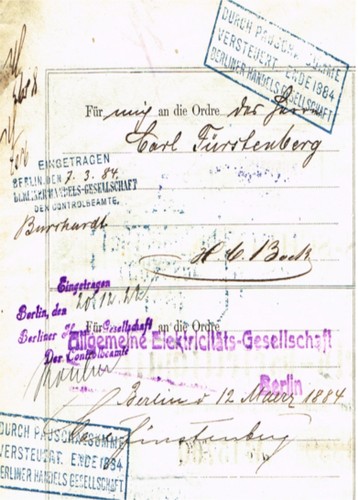 DURCH PAUSCHALSUMME
VERSTEUERT. ENDE 1884
BERLINER HANDELS GESELLSCHAFT
Für mich an die Ordre des Herrn
Carl Fürstenberg
EINGETRAGEN
BERLIN, DEN 7. 3. 84.
BERLINER HANDELS-GESELLSCHAFT
DER CONTROLBEAMTE.
Burghardt
Eingetragen
Berlin, den
Berliner Handels-Gesellschaft
Der Controlbeamte
Für an die Ordre
Allgemeine Elektricitäts-Gesellschaft
Berlin
Berlin d 12 Maerz 1884
Fürstenberg
DURCH PAUSCHALSUMME
VERSTEUERT. ENDE 1884
BERLINER HANDELS GESELLSCHAFT